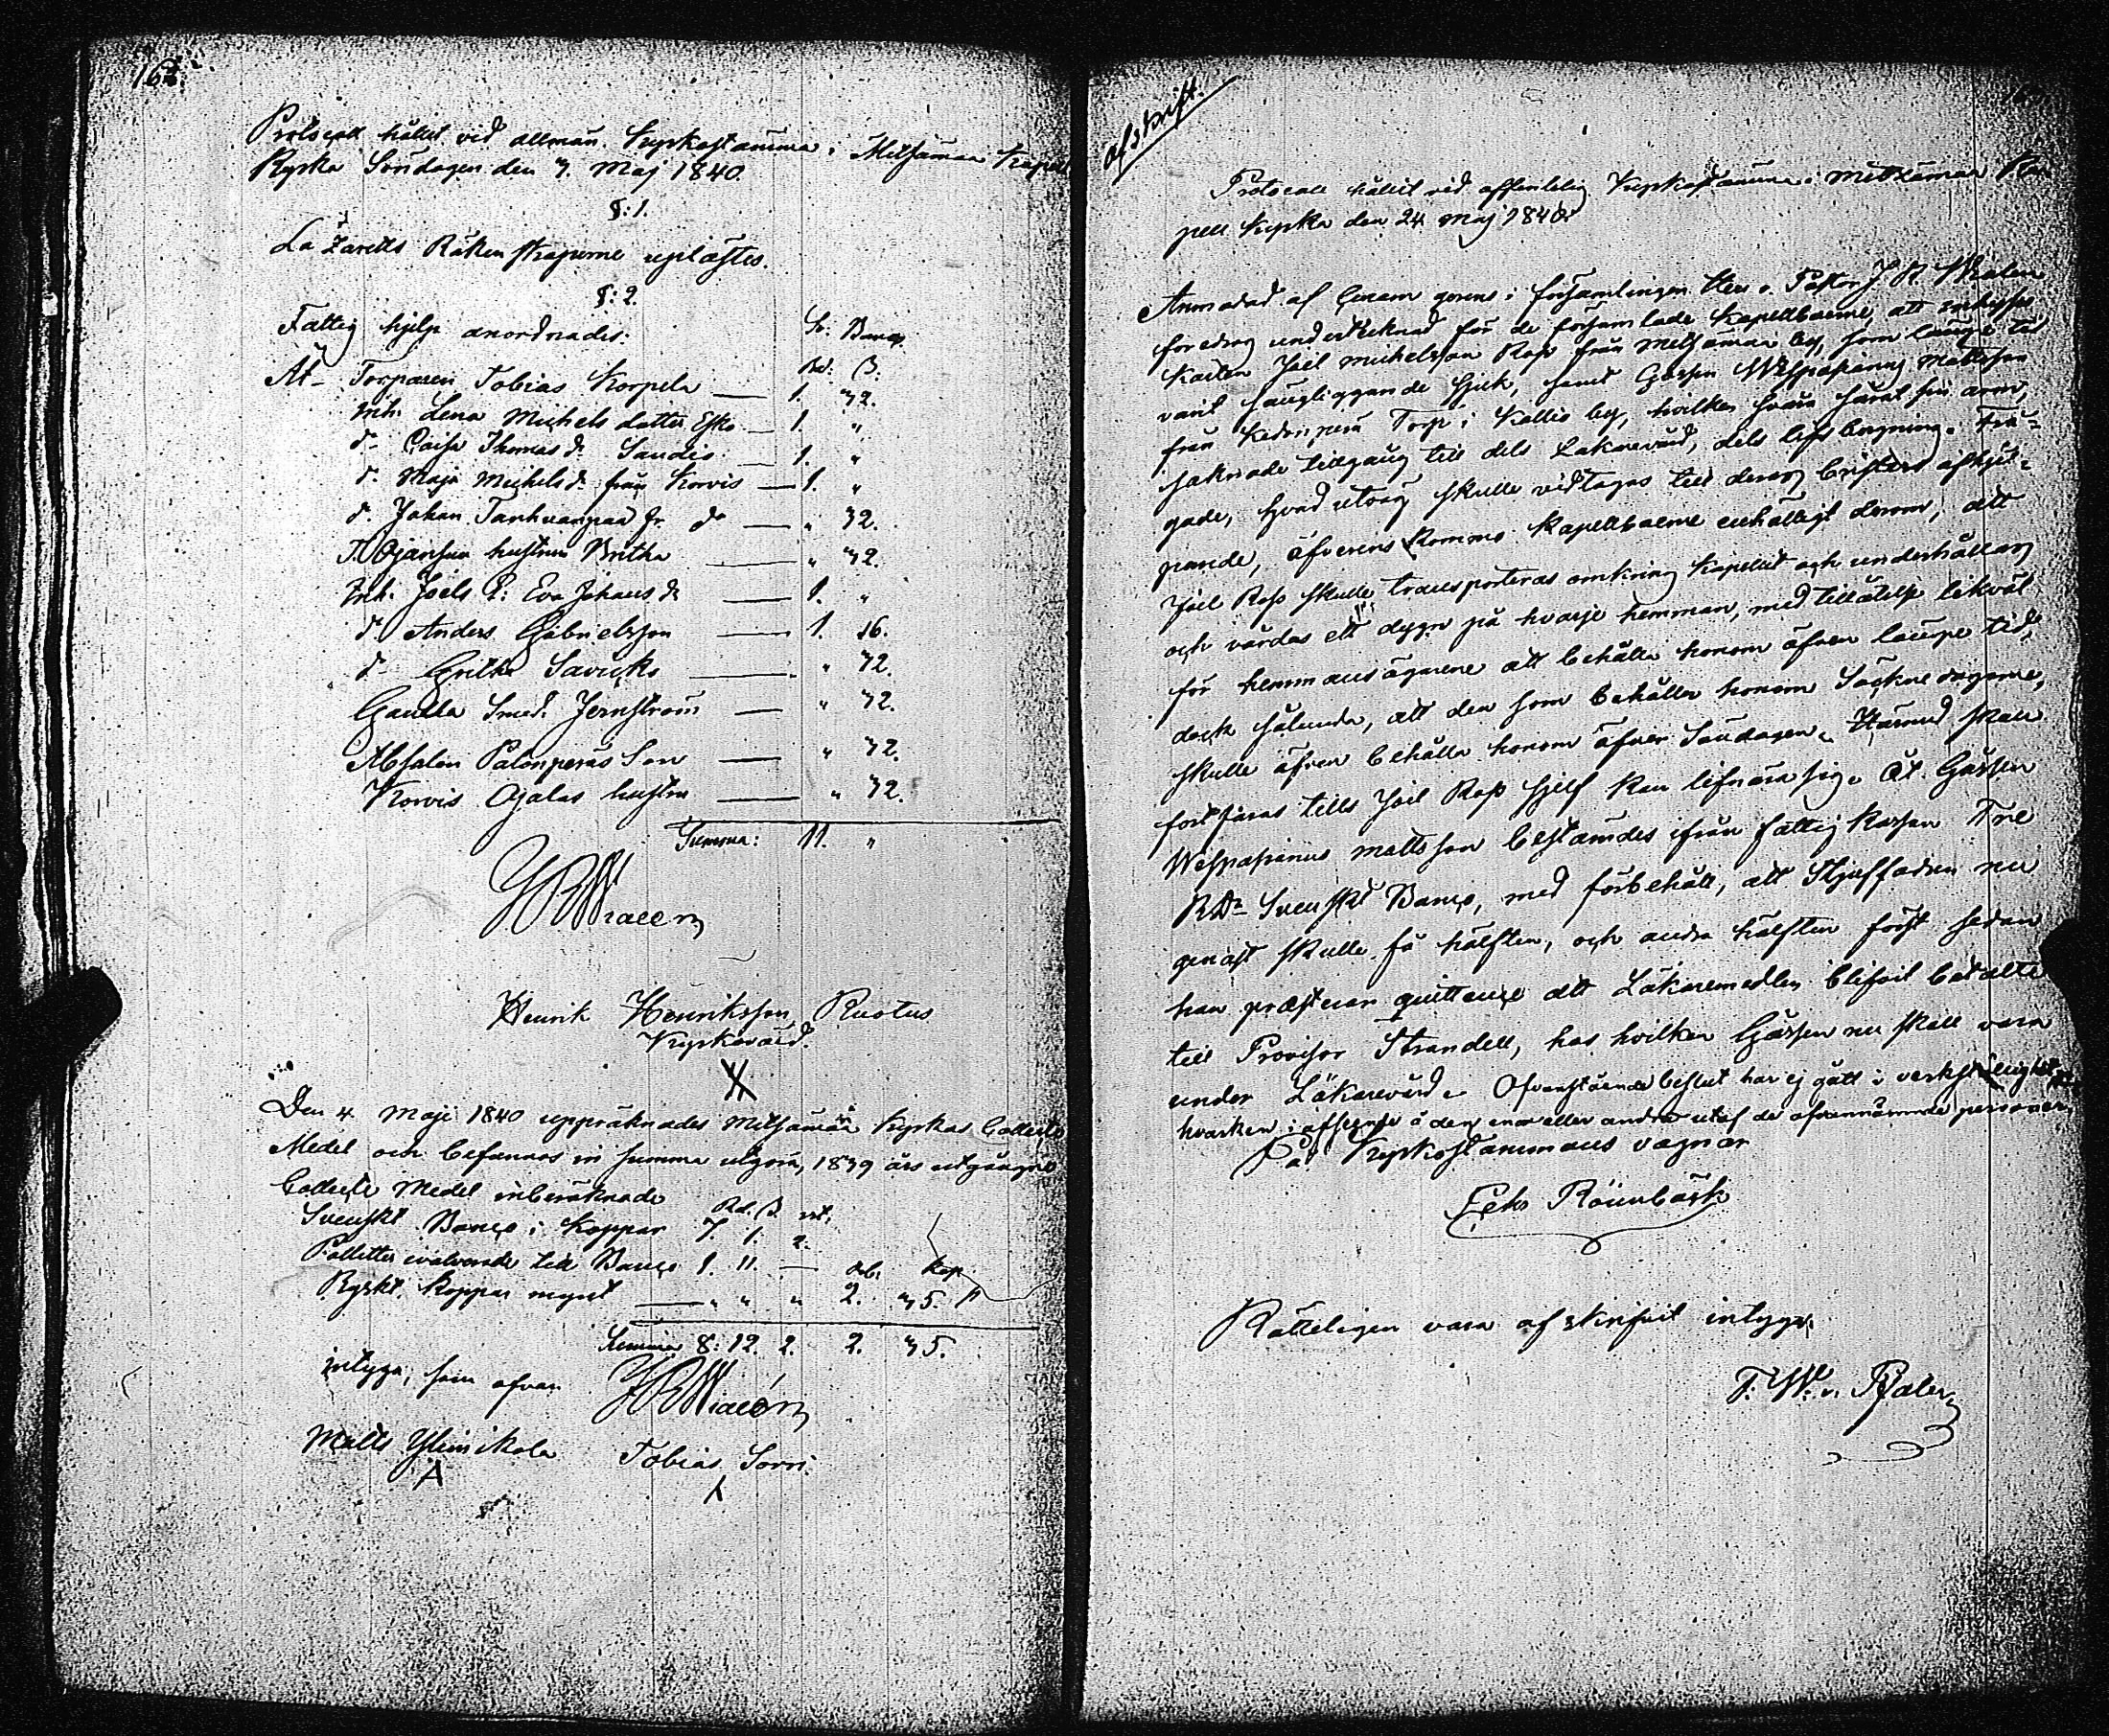 163.
Protocoll hållit vid allmän Kyrkostämma i Metsämaa Kapell
Kyrka Söndagen den 3. Maj 1840.
§: 1.
Lazaretts Räkenskaperne upläстes.
§: 2.
Fattig hjelp anordnades:
Sv: Banco.
Rd: ß:
Åt Torparen Tobias Korpela — 1. 32.
Inh. Lena Michels dotter Esko — 1. "
d:o Caisa Thomas d:r Sandis — 1. "
d:o Maja Michels d:r från Korvis — 1. "
d:o Johan Tanhuanpää fr. d:o — " 32.
T. Ojansuu hustru Britha — " 32.
Inh. Joels E: Eva Johans d:r — 1. "
d:o Anders Gabrielsson — 1. 16.
d:o Gretha Savicko — " 32.
Gamla Smed. Jernström — " 32.
Absalon Palonperäs Son — " 32.
Korvis Ojalas hustru — " 32.
Summa: 11. "
J R Wialén
Henrik Henriksson Ruotus
Kyrkovärd.
Den 4 Maji 1840 uppräknades Metsämaa Kyrkas Collecte
Medel och befannos in summa utgöra, 1839 års utgångne
Collecte Medel inberäknade
Rd. ß. rst.
Svenskt Banco i Koppar 7. 1. 2.
Polletter evalverade till Banco 1. 11. — Rub. Kop
Ryskt Koppar mynt — " " " 2. 35.
Summa 8: 12. 2. 2. 35.
intyga, som ofvan J R Wialén
Matts Ylinikola Tobias Sorri
afskrift.
Protocoll hållit vid offentelig Kyrkostämma i Metsämaa Ka-
pell Kyrka den 24 Maj 1840.
Anmodad af Genom gorens i församlingen Herr v. Pastor J. R Wialén
föredrog undertecknad för de församlade Kapellboerne, att
Karlen Joel Michelsson Rap från Metsämaa by, som länge tid
varit sängliggande sjuk, samt Gossen Wespasianus Mattsson
från Kedonperä Torp i Kallio by, hvilken svåra sårat sin arm,
saknade tillgång till dels Läkarevård, dels lifs bergning. Frå-
gade, hvad utväg skulle vidtagas till deras bristers afhjel-
pande, öfverens kommo kapellboerne enhälligt derom, att
Joel Rap skulle transporteras omkring Kapellet och underhållas
och vårdas ett dygn på hvarje hemman, med tillåtelse likväl
för hemmansägarene att behålla honom äfven längre tid,
dock sålunda, att den som behåller honom Söckne dagarne,
skulle äfven behålla honom öfver Söndagen. Härmed skall
fortfaras tills Joel Rap sjelf kan lifnära sig. Åt Gossen
Wespasianus Mattsson bestämdes ifrån fattig kassan Tre
R:Dr Svenskt Banco, med förbehåll, att Styffadren nu
genast skulle få hälften, och andra hälften först sedan
han præsterar quittence att Läkaremedlen blifvit betalte
till Provisor Strandell, hos hvilken Gossen nu skall vara
under Läkarevård. Ofvanstående beslut har ej gått i verkställighet
hvarken i afseende å den ena eller andra utaf de ofvannämnde personer.
På Kyrkostämmans vägnar
Eeks Rönnbäck
Rätteligen vara afskrifvit intygar
F. W. v. Pfaler